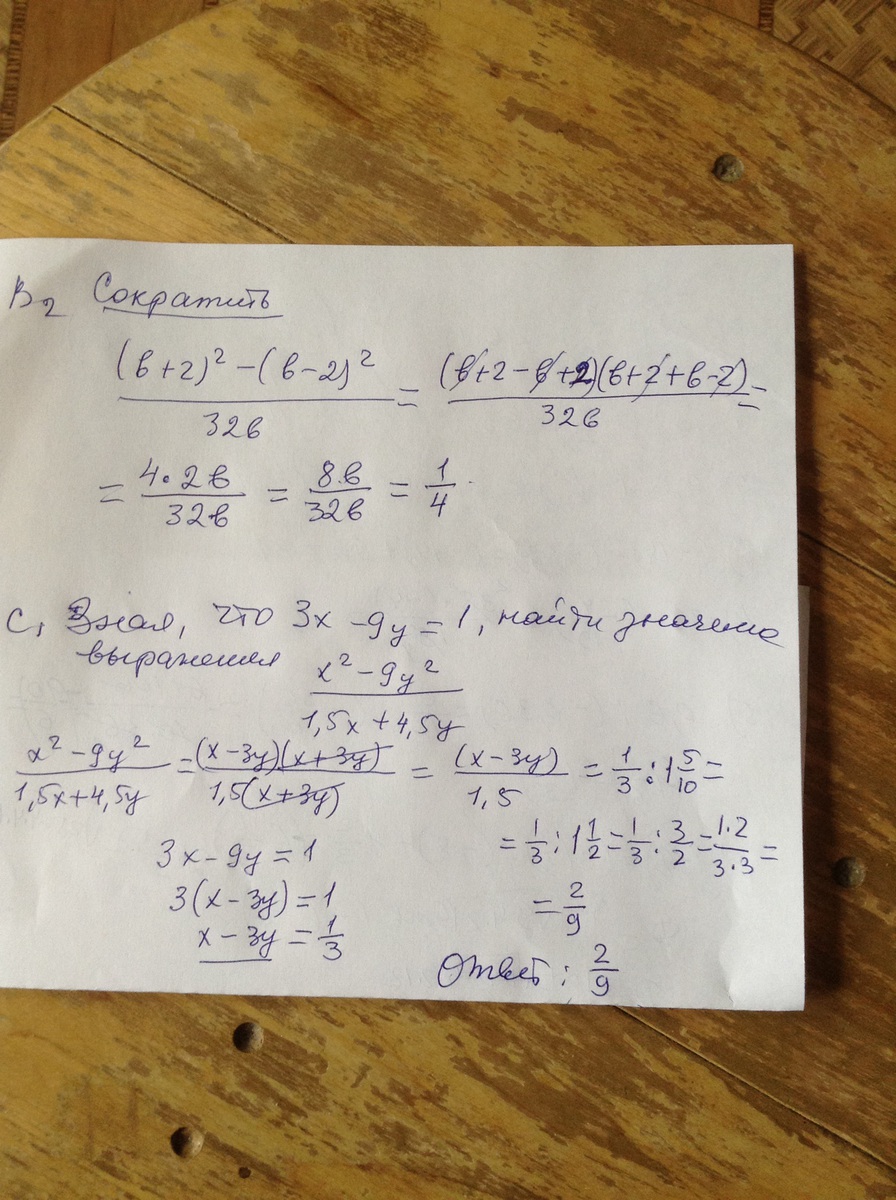 В₂ Сократить
((в+2)² - (в-2)²)/32в = ((в+2-в+2)(в+2+в-2))/32в =
= 4·2в/32в = 8в/32в = 1/4
С₁ Зная, что 3x - 9y = 1, найти значение
выражения
(x² - 9y²)/(1,5x + 4,5y)
(x² - 9y²)/(1,5x+4,5y) = ((x-3y)(x+3y))/(1,5(x+3y)) = (x-3y)/1,5 = 1/3 : 1 5/10 =
= 1/3 : 1 1/2 = 1/3 : 3/2 = 1·2/3·3 =
= 2/9
3x - 9y = 1
3(x - 3y) = 1
x - 3y = 1/3
Ответ: 2/9